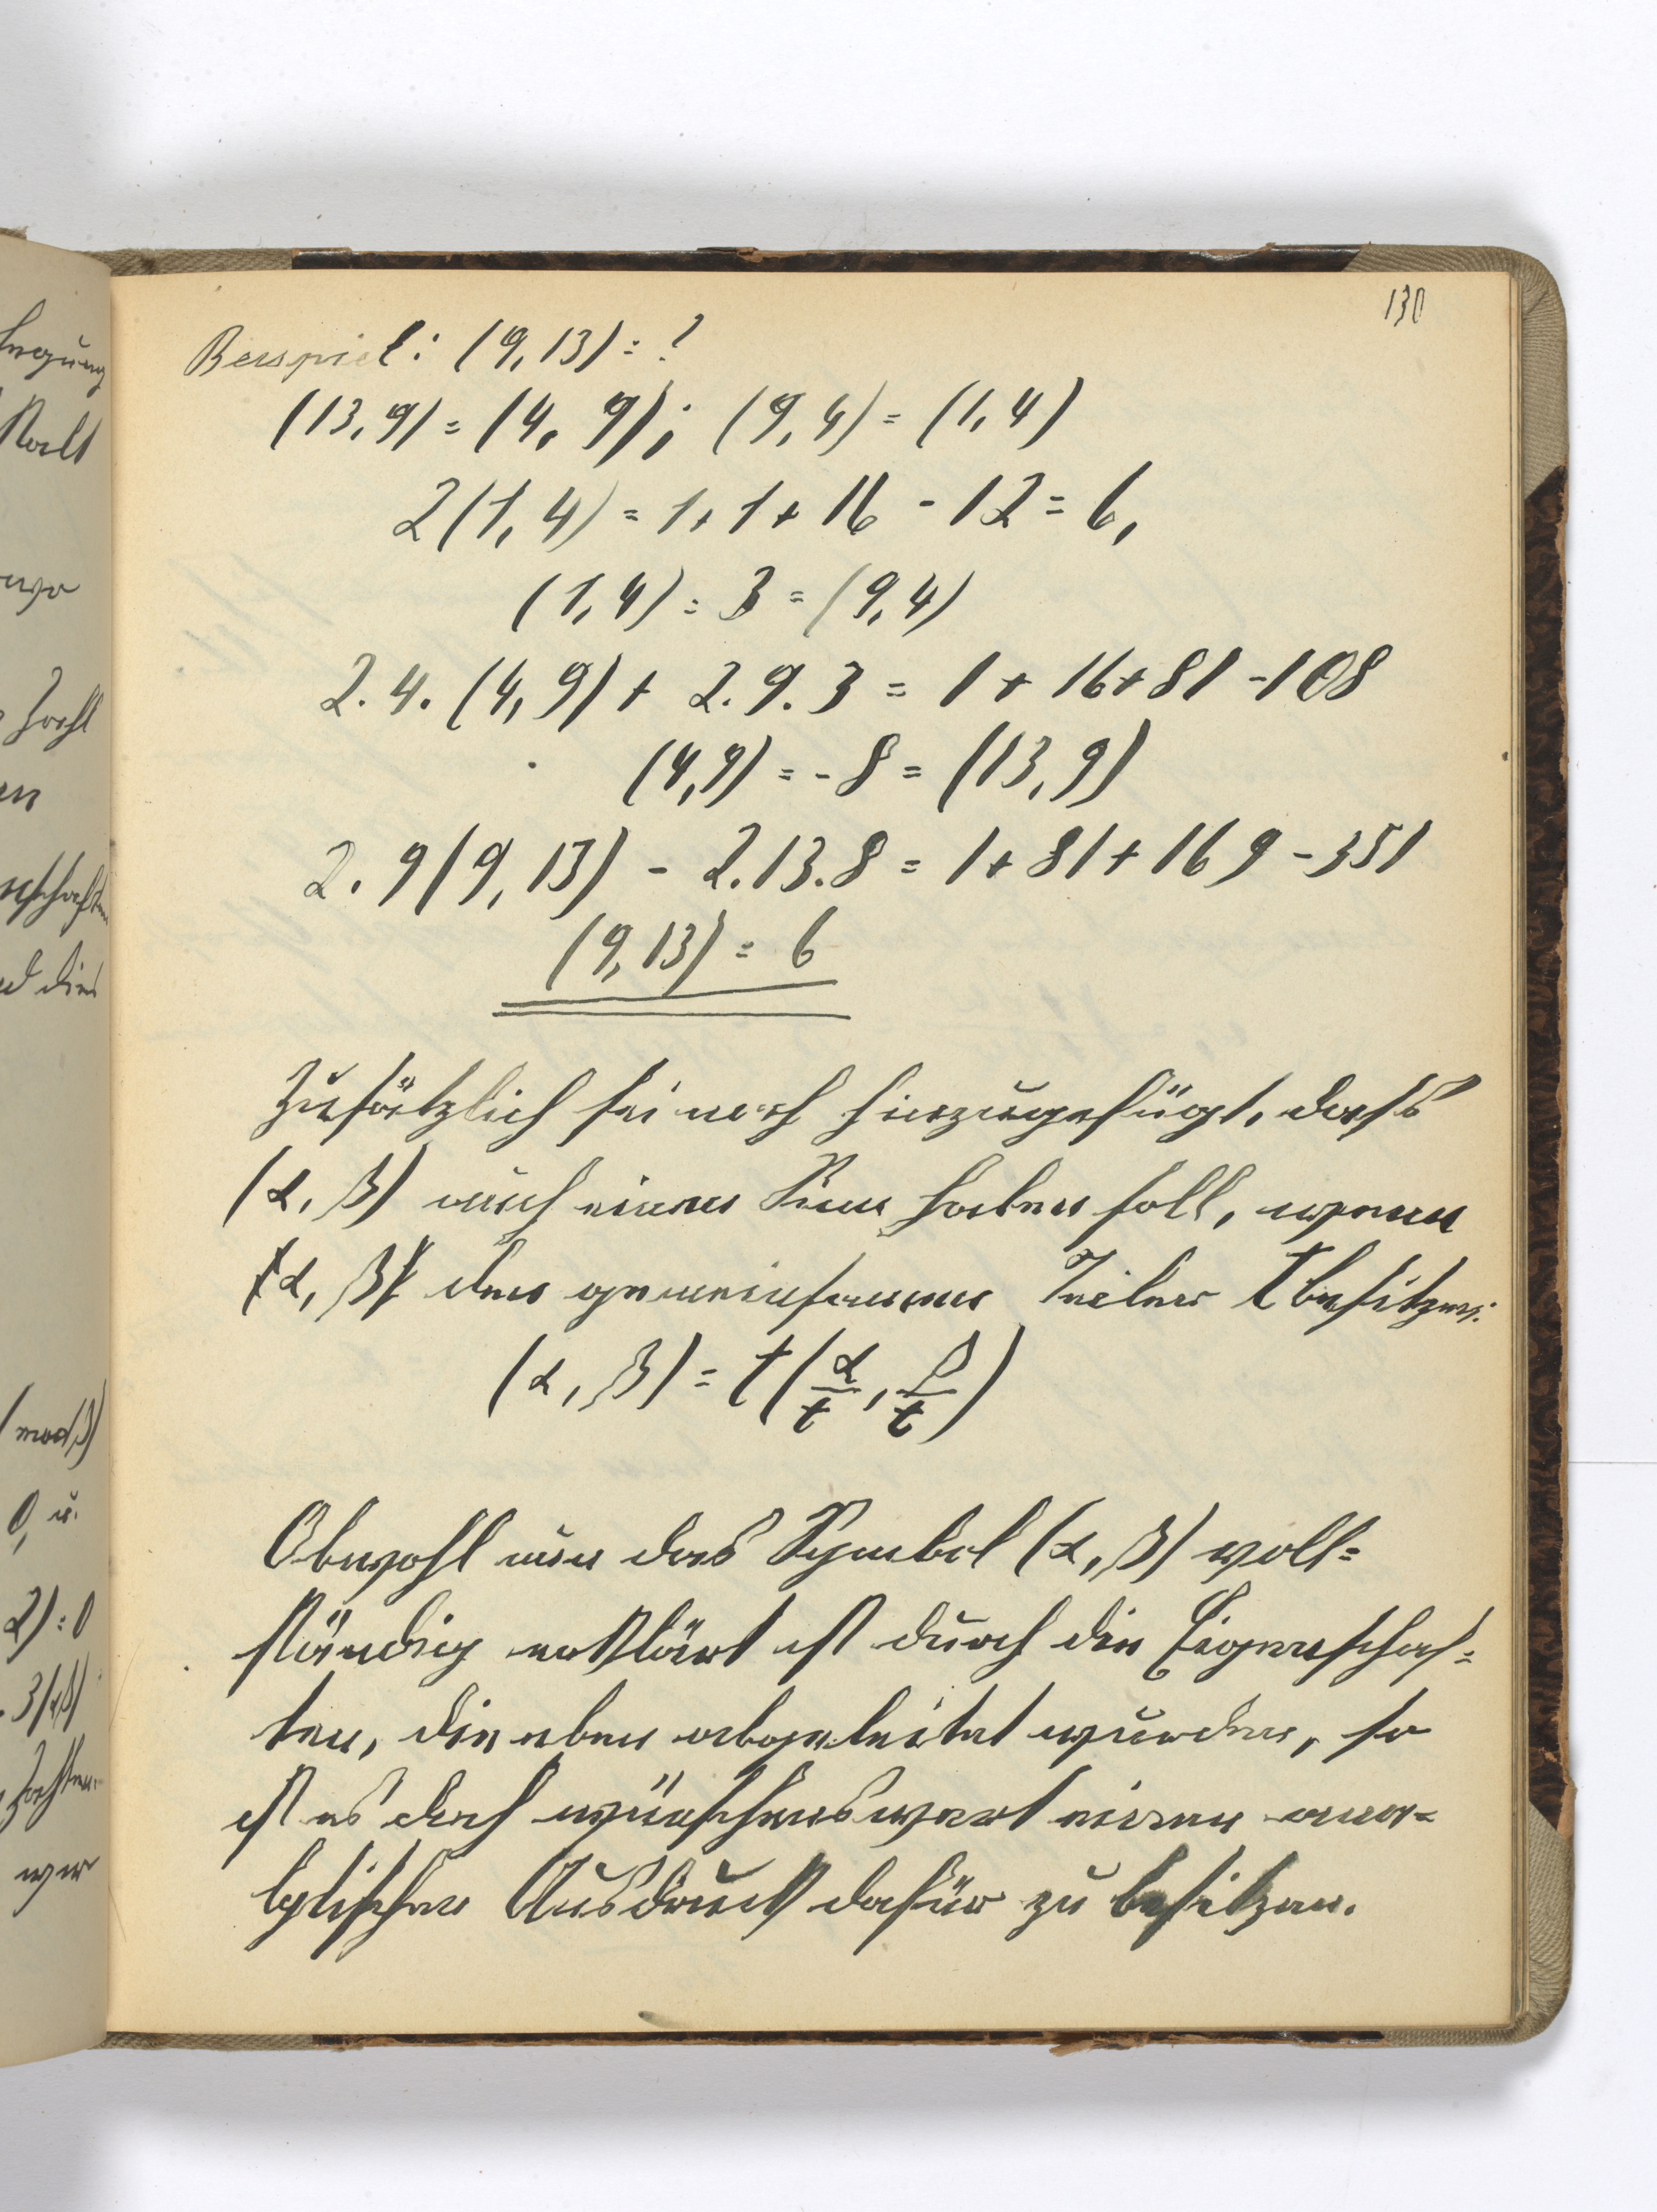 130
Beispiel: (9,13) = ?
(13,9) = (4,9); (9,4) = (1,4)
2(1,4) = 1+1+16 - 12 = 6,
(1,4) = 3 = (9,4)
2.4.(4,9) + 2.9.3 = 1 + 16 + 81 - 108
(4,9) = - 8 = (13,9)
2.9(9,13) - 2.13.8 = 1 + 81 + 169 - 351
(9,13) = 6
Zusätzlich sei noch hinzugefügt, dass
(α, β) auch einen Sinn haben soll, wenn
α, β den gemeinsamen Teiler t besitzen:
(α, β) = t(α/t, β/t)
Obwohl nun das Symbol (α, β) voll=
ständig erklärt ist durch die Eigenschaf=
ten, die eben abgeleitet wurden, so
ist es doch wünschenswert einen ana=
lytischen Ausdruck dafür zu besitzen.
wo
Zahl
en
d die
(mod β)
0, u.
2) = 0